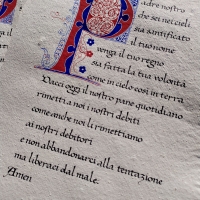 adre nostro
che sei nei cieli
sia santificato
il tuo nome
venga il tuo regno
sia fatta la tua volontà
come in cielo così in terra
Dacci oggi il nostro pane quotidiano
rimetti a noi i nostri debiti
come anche noi li rimettiamo
ai nostri debitori
e non abbandonarci alla tentazione
ma liberaci dal male.
Amen